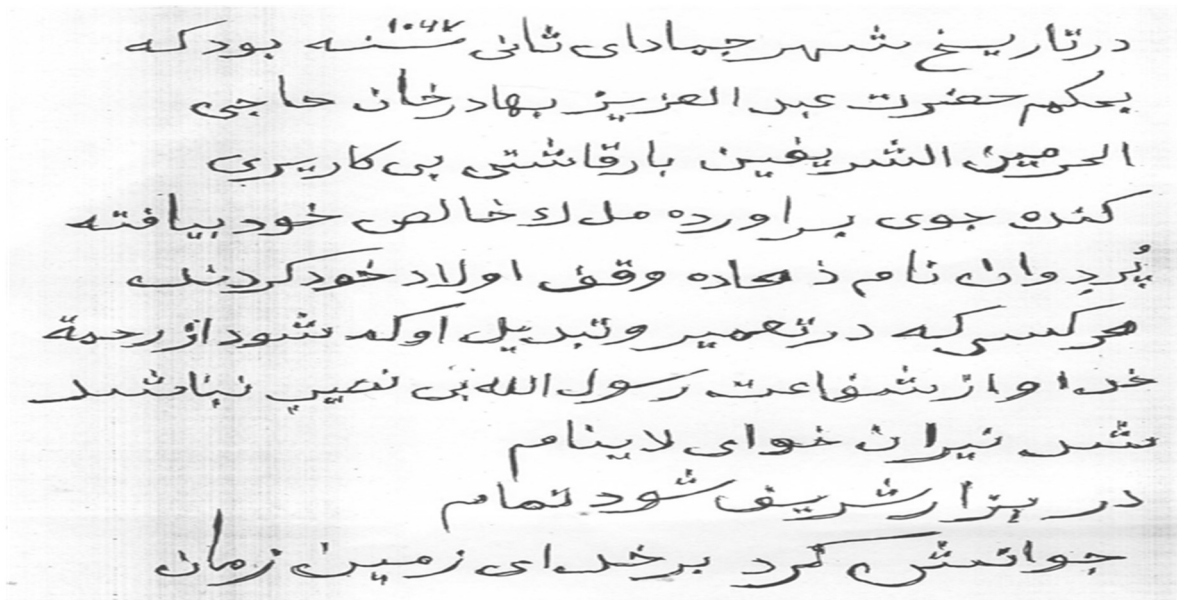 در تاریخ شهر جمادای ثانی سنه ۱۰۶۷ بود که
بحکم حضرت عبد العزیز بهادر خان حاجی
الحرمین الشریفین بار قاشتی بی کاریزي
کنده جوی بر اورده ملك خالص خود بیافته
نام وقف اولاد خود کردند
هر کسی که در تعمیر و تبدیل او که شود از رحمة
خدا و از شفاعت رسول الله بی نصیب نباشد
شد نیران خوای لاینام
در هزار شریف شود تمام
جوانش کرد بر خدای زمین زمان